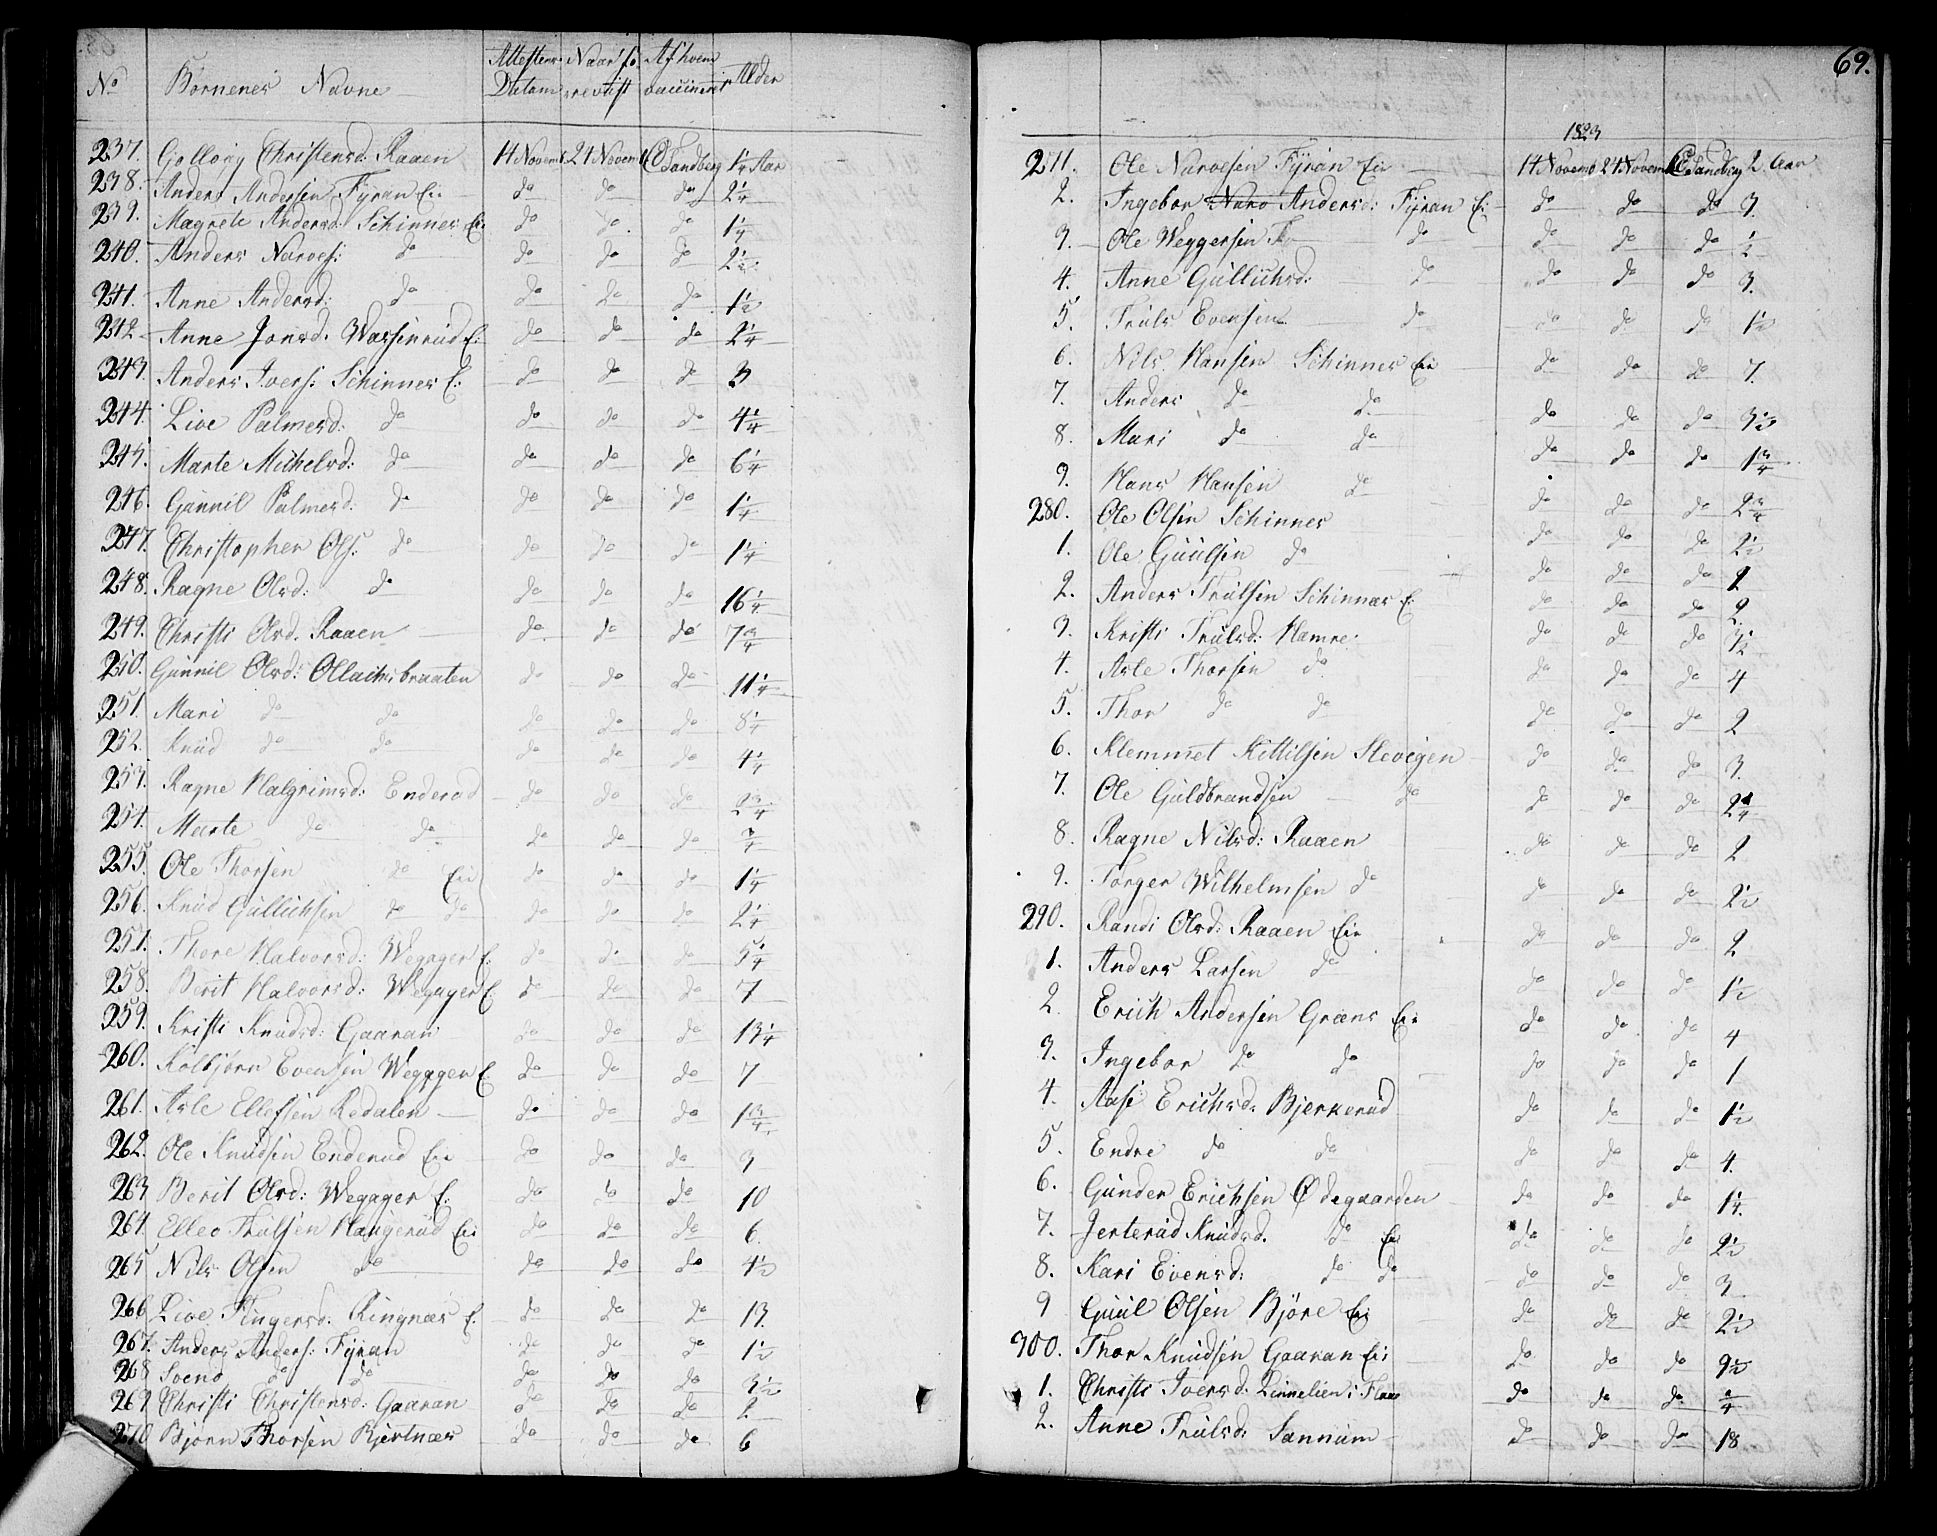 No Börnenes Navne Attestens Datum Naar fo- revist Af hvem vaccineret Alder
237. Gollöug Christensd: Raaen 14 Novemb. 21 Novemb. C Sandberg 1 1/4 Aar
238. Anders Andersen Fÿran Ei: do do do 2 1/4
239. Magrete Andersd: Schinnes Ei. do do do
240. Anders Narves: do do do do 2 1/2
241. Anne Andersd: do do do do 1 1/2
242. Anne Jonsd. Wassenrud E: do do do 2 1/4
243. Anders Ivers: Schinnes E: do do do 3
244. Live Palmesd: do do do do 4 1/4
245. Marte Michelsd: do do do do 6 1/4
246. Gunnil Palmesd. do do do do 1 1/4
247. Christopher Ols: do do do do 1 1/4
248. Ragne Olsd: do do do do 16 1/4
249. Christi Olsd. Raaen do do do 7 3/4
250. Gunnil Olsd: Ollachsbraaten do do do 11 1/4
251. Mari do do do do do 8 1/4
252. Knud do do do do do 4 1/4
253. Ragne Halgrimsd: Enderud do do do 2 3/4
254. Marte do do do do do 3/4
255. Ole Thorsen do Eie do do do 1 1/4
256. Knud Gullichsen do do do do do 2 1/4
257. Thore Halvorsd: Wegager E: do do do 5 1/4
258. Berit Halvorsd: Wegager E: do do do 7
259. Kristi Knudsd: Gaaran do do do 13 1/4
260. Kolbjörn Evensen Weggger E. do do do 7
261. Asle Ellefsen Rodalen do do do 1 3/4
262. Ole Knudsen Enderud Eie do do do 3
263 Berit Olsd: Wegager E. do do do 10
264. Ellev Trulsen Haugerud Eie do do do 6.
265 Nils Olsen do do do do 4 1/2
266 Live Flingersd: Ringnæs E. do do do 13.
267. Anders Anders: Fÿran do do do 1 1/2
268 Svend do do do do do 3 1/2
269 Christi Christensd: Gaaran do do do 2
270 Björn Thorsen Bjertnæs do do do 6
69.
1823
271. Ole Narvesen Fÿran Eie 14 Novemb 21 Novemb C Sandberg 2. Aar
2. Ingebor Narv Andersd: Fÿran E: do do do 3.
3. Ole Weggersen do do do do 1/2
4. Anne Gullichsd: do do do do 3.
5. Truls Evensen do do do do 1 1/2
6. Nils Hansen Schinnes Eie do do do 7.
7. Anders do do do do do 3 1/2
8. Mari do do do do do 1 3/4
9. Hans Hansen do do do do 2 3/4
280. Ole Olsen Schinnes do do do 2 1/2
1. Ole Guulsen do do do do 2
2. Anders Trulsen Schinnæs E: do do do 2.
3. Kristi Trulsd: Hamre: do do do
4. Asle Thorsen do do do do 4
5. Thor do do do do do 2
6. Klemmet Kittilsen Stevigen do do do 3.
7. Ole Guldbrandsen do do do do 2 1/4
8. Ragne Nilsd: Raaen do do do 2
9. Torger Wilhelmsen do do do do 2 1/2
290. Randi Olsd: Raaen Eie do do do 2
1. Anders Larsen do do do do 1 1/2
2. Erich Andersen Græns Eie do do do 4
3. Ingebor do do do do do 1
4. Aase Erichsd: Bjerkerud do do do 1 1/2
5. Endre do do do do do 4.
6. Gunder Erichsen Ödegaarden do do do 1 1/4.
7. Jerterud Knudsd. do Eie do do do 2 1/2
8. Kari Evensd: do do do do do 3
9 Guul Olsen Björe Eie do do do 2 1/2
300. Thor Knudsen Gaaran Eie do do do 9 1/2
1. Christi Iversd. Linnelien i Flaae do do do 3/4
2. Anne Trulsd: Sannum do do do 18